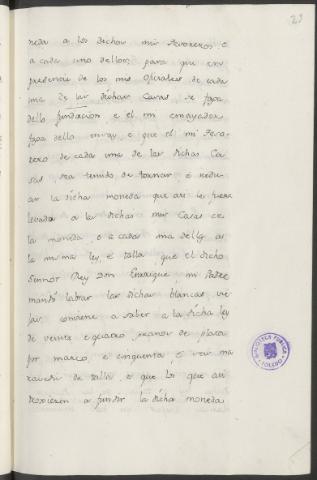 23
neda a los dichos mis Thesoreros e
a cada uno dellos, para que en
presencia de los mis oficiales de cada
una de las dichas Casas, se faga
dello fundicion e el mi ensayador
faga dello ensay e que el mi Theso-
rero de cada una de las dichas Ca-
sas, sea tenudo de tornar e redu-
cir la dicha moneda que asi le fuere
levada a las dichas mis Casas de
la moneda, e a cada una dellas a
la misma ley, e talla que el dicho
Sennor Rey Don Enrique, mi Padre
mandó labrar las dichas blancas vie-
jas, conviene a saber a la dicha ley
de veinte e quatro granos de plata
por marco, e cinquenta e un ma-
ravedi de talla, e que los que asi
troxieren a fundir la dicha moneda
BIBLIOTECA PUBLICA
TOLEDO